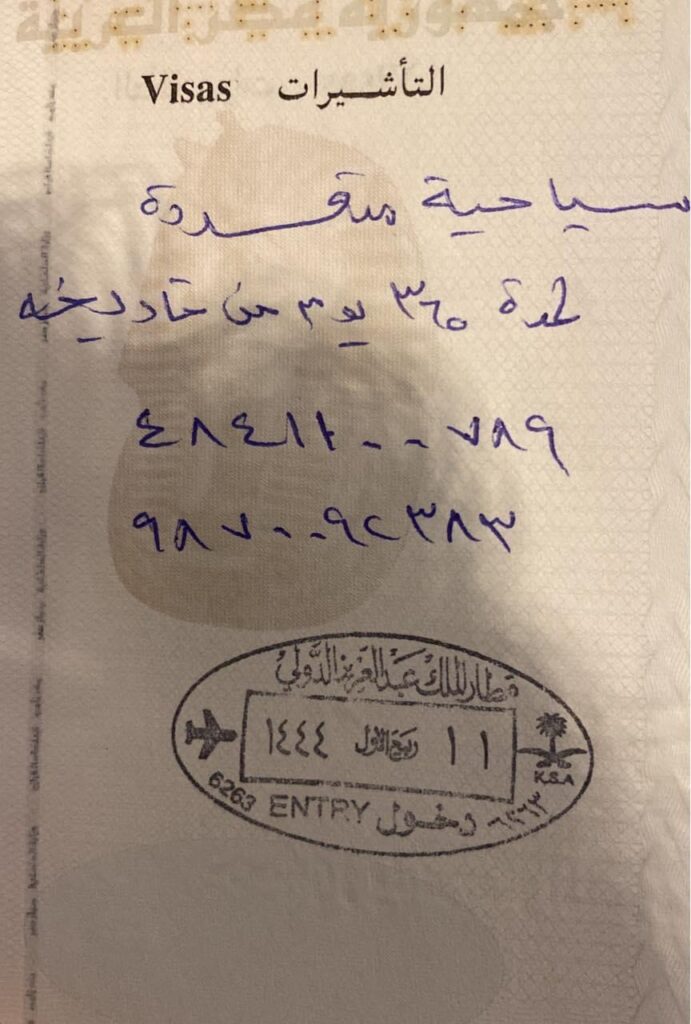 جمهورية مصر العربية
Visas التأشيرات
سياحية متعددة
لمدة ٣٦٠ يوم من تاريخه
٩٨٧٠٠٩٢٣٨٣
مطار الملك عبدالعزيز الدولي
١١ ربيع الاول ١٤٤٤
K.S.A
6263 ENTRY دخول ٦٢٦٣